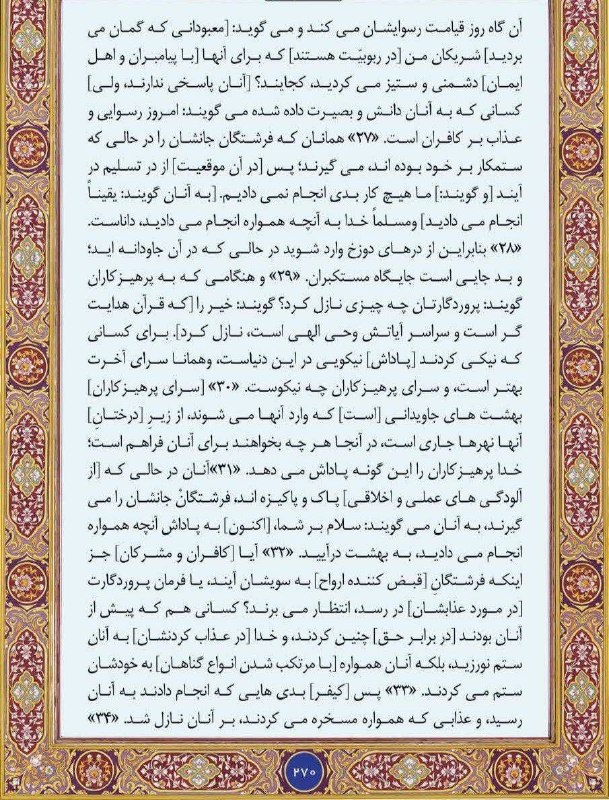 آن گاه روز قیامت رسوایشان می کند و می گوید: [معبودانی که گمان می
بردید] شریکان من [در ربوبیّت هستند] که برای آنها [با پیامبران و اهل
ایمان] دشمنی و ستیز می کردید، کجایند؟ [آنان پاسخی ندارند، ولی]
کسانی که به آنان دانش و بصیرت داده شده می گویند: امروز رسوایی و
عذاب بر کافران است. «۲۷» همانان که فرشتگان جانشان را در حالی که
ستمکار بر خود بوده اند، می گیرند؛ پس [در آن موقعیت] از در تسلیم در
آیند [و گویند:] ما هیچ کار بدی انجام نمی دادیم. [به آنان گویند: یقیناً
انجام می دادید] ومسلماً خدا به آنچه همواره انجام می دادید، داناست.
«۲۸» بنابراین از درهای دوزخ وارد شوید در حالی که در آن جاودانه اید؛
و بد جایی است جایگاه مستکبران. «۲۹» و هنگامی که به پرهیزکاران
گویند: پروردگارتان چه چیزی نازل کرد؟ گویند: خیر را [که قرآن هدایت
گر است و سراسر آیاتش وحی الهی است، نازل کرد]. برای کسانی
که نیکی کردند [پاداش] نیکویی در این دنیاست، وهمانا سرای آخرت
بهتر است، و سرای پرهیزکاران چه نیکوست. «۳۰» [سرای پرهیزکاران]
بهشت های جاویدانی [است] که وارد آنها می شوند، از زیرِ [درختانِ]
آنها نهرها جاری است، در آنجا هر چه بخواهند برای آنان فراهم است؛
خدا پرهیزکاران را این گونه پاداش می دهد. «۳۱»آنان در حالی که [از
آلودگی های عملی و اخلاقی] پاک و پاکیزه اند، فرشتگانْ جانشان را می
گیرند، به آنان می گویند: سلام بر شما، [اکنون] به پاداش آنچه همواره
انجام می دادید، به بهشت درآیید. «۳۲» آیا [کافران و مشرکان] جز
اینکه فرشتگانِ [قبض کننده ارواح] به سویشان آیند، یا فرمان پروردگارت
[در مورد عذابشان] در رسد، انتظار می برند؟ کسانی هم که پیش از
آنان بودند [در برابر حق] چنین کردند، و خدا [در عذاب کردنشان] به آنان
ستم نورزید، بلکه آنان همواره [با مرتکب شدن انواع گناهان] به خودشان
ستم می کردند. «۳۳» پس [کیفر] بدی هایی که انجام دادند به آنان
رسید، و عذابی که همواره مسخره می کردند، بر آنان نازل شد. «۳۴»
۲۷۰